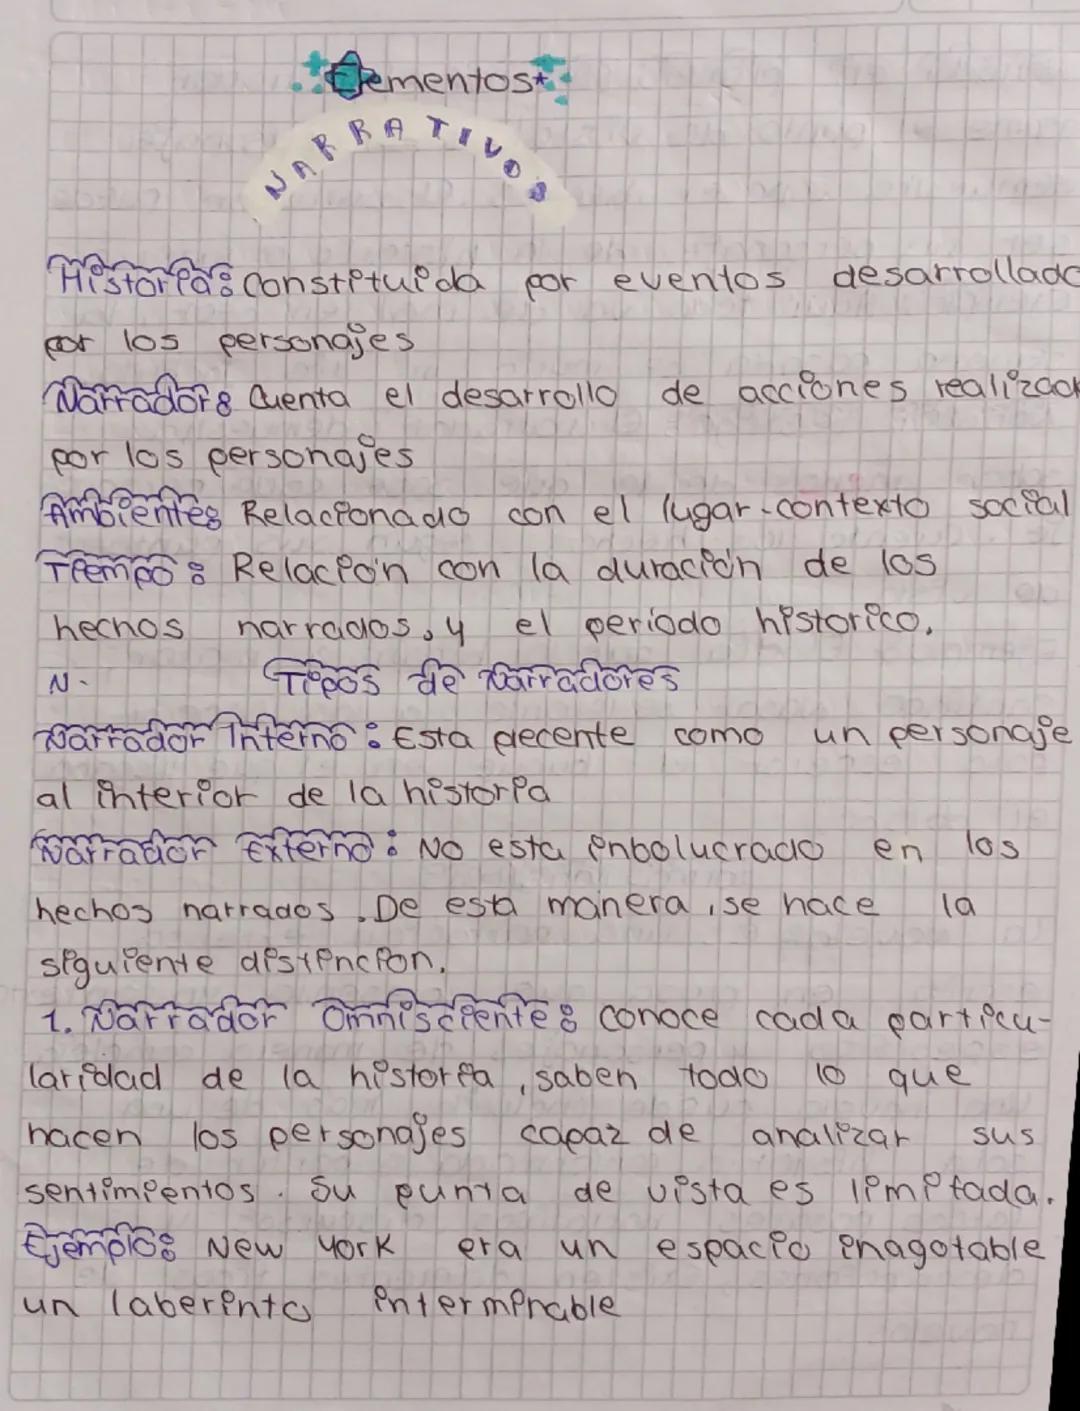 Elementos
NARRATIVOS
Historia: Constituida por eventos desarrollado
por los personajes
Narrador: Cuenta el desarrollo de acciones realizad
por los personajes
Ambiente: Relacionado con el lugar-contexto social
Tiempo: Relación con la duración de los
hechos narrados, y el período historico.
N- Tipos de narradores
Narrador Interno: Esta precente como un personaje
al interior de la historia
Narrador Externo: No esta inbolucrado en los
hechos narrados. De esta manera, se hace la
siguiente distincion.
1. Narrador Omnisciente: conoce cada particu-
laridad de la historia, saben todo lo que
hacen los personajes capaz de analizar sus
sentimientos. Su punta de vista es limitada.
Ejemplo: New York era un espacio inagotable
un laberinto interminable